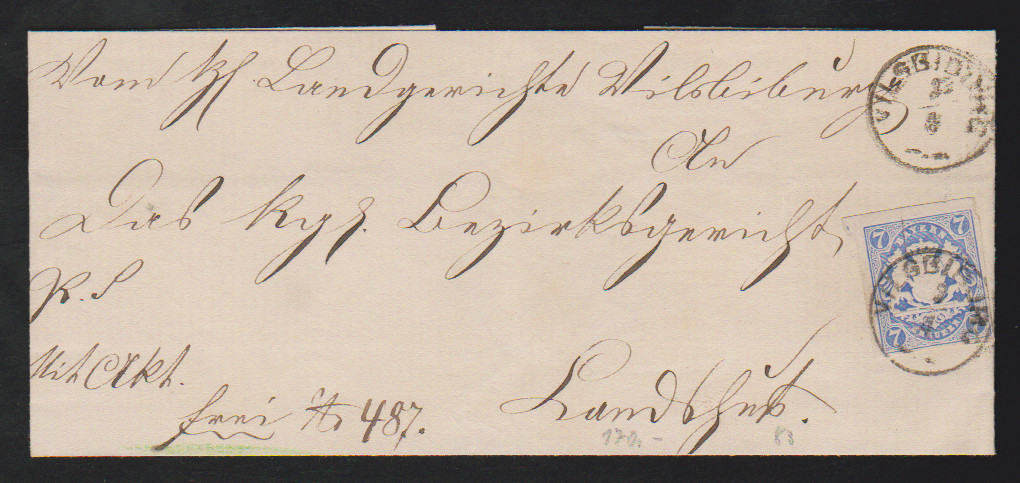 Vom kgl. Landgerichte Vilsbiburg
VILSBIBURG
An
Das kgl. Bezirksgericht
7 7
BAYERN
VILSBIBURG
7
KREUZER
R. S
Mit Akt.
frei No 487.
Landshut.
170,-
83